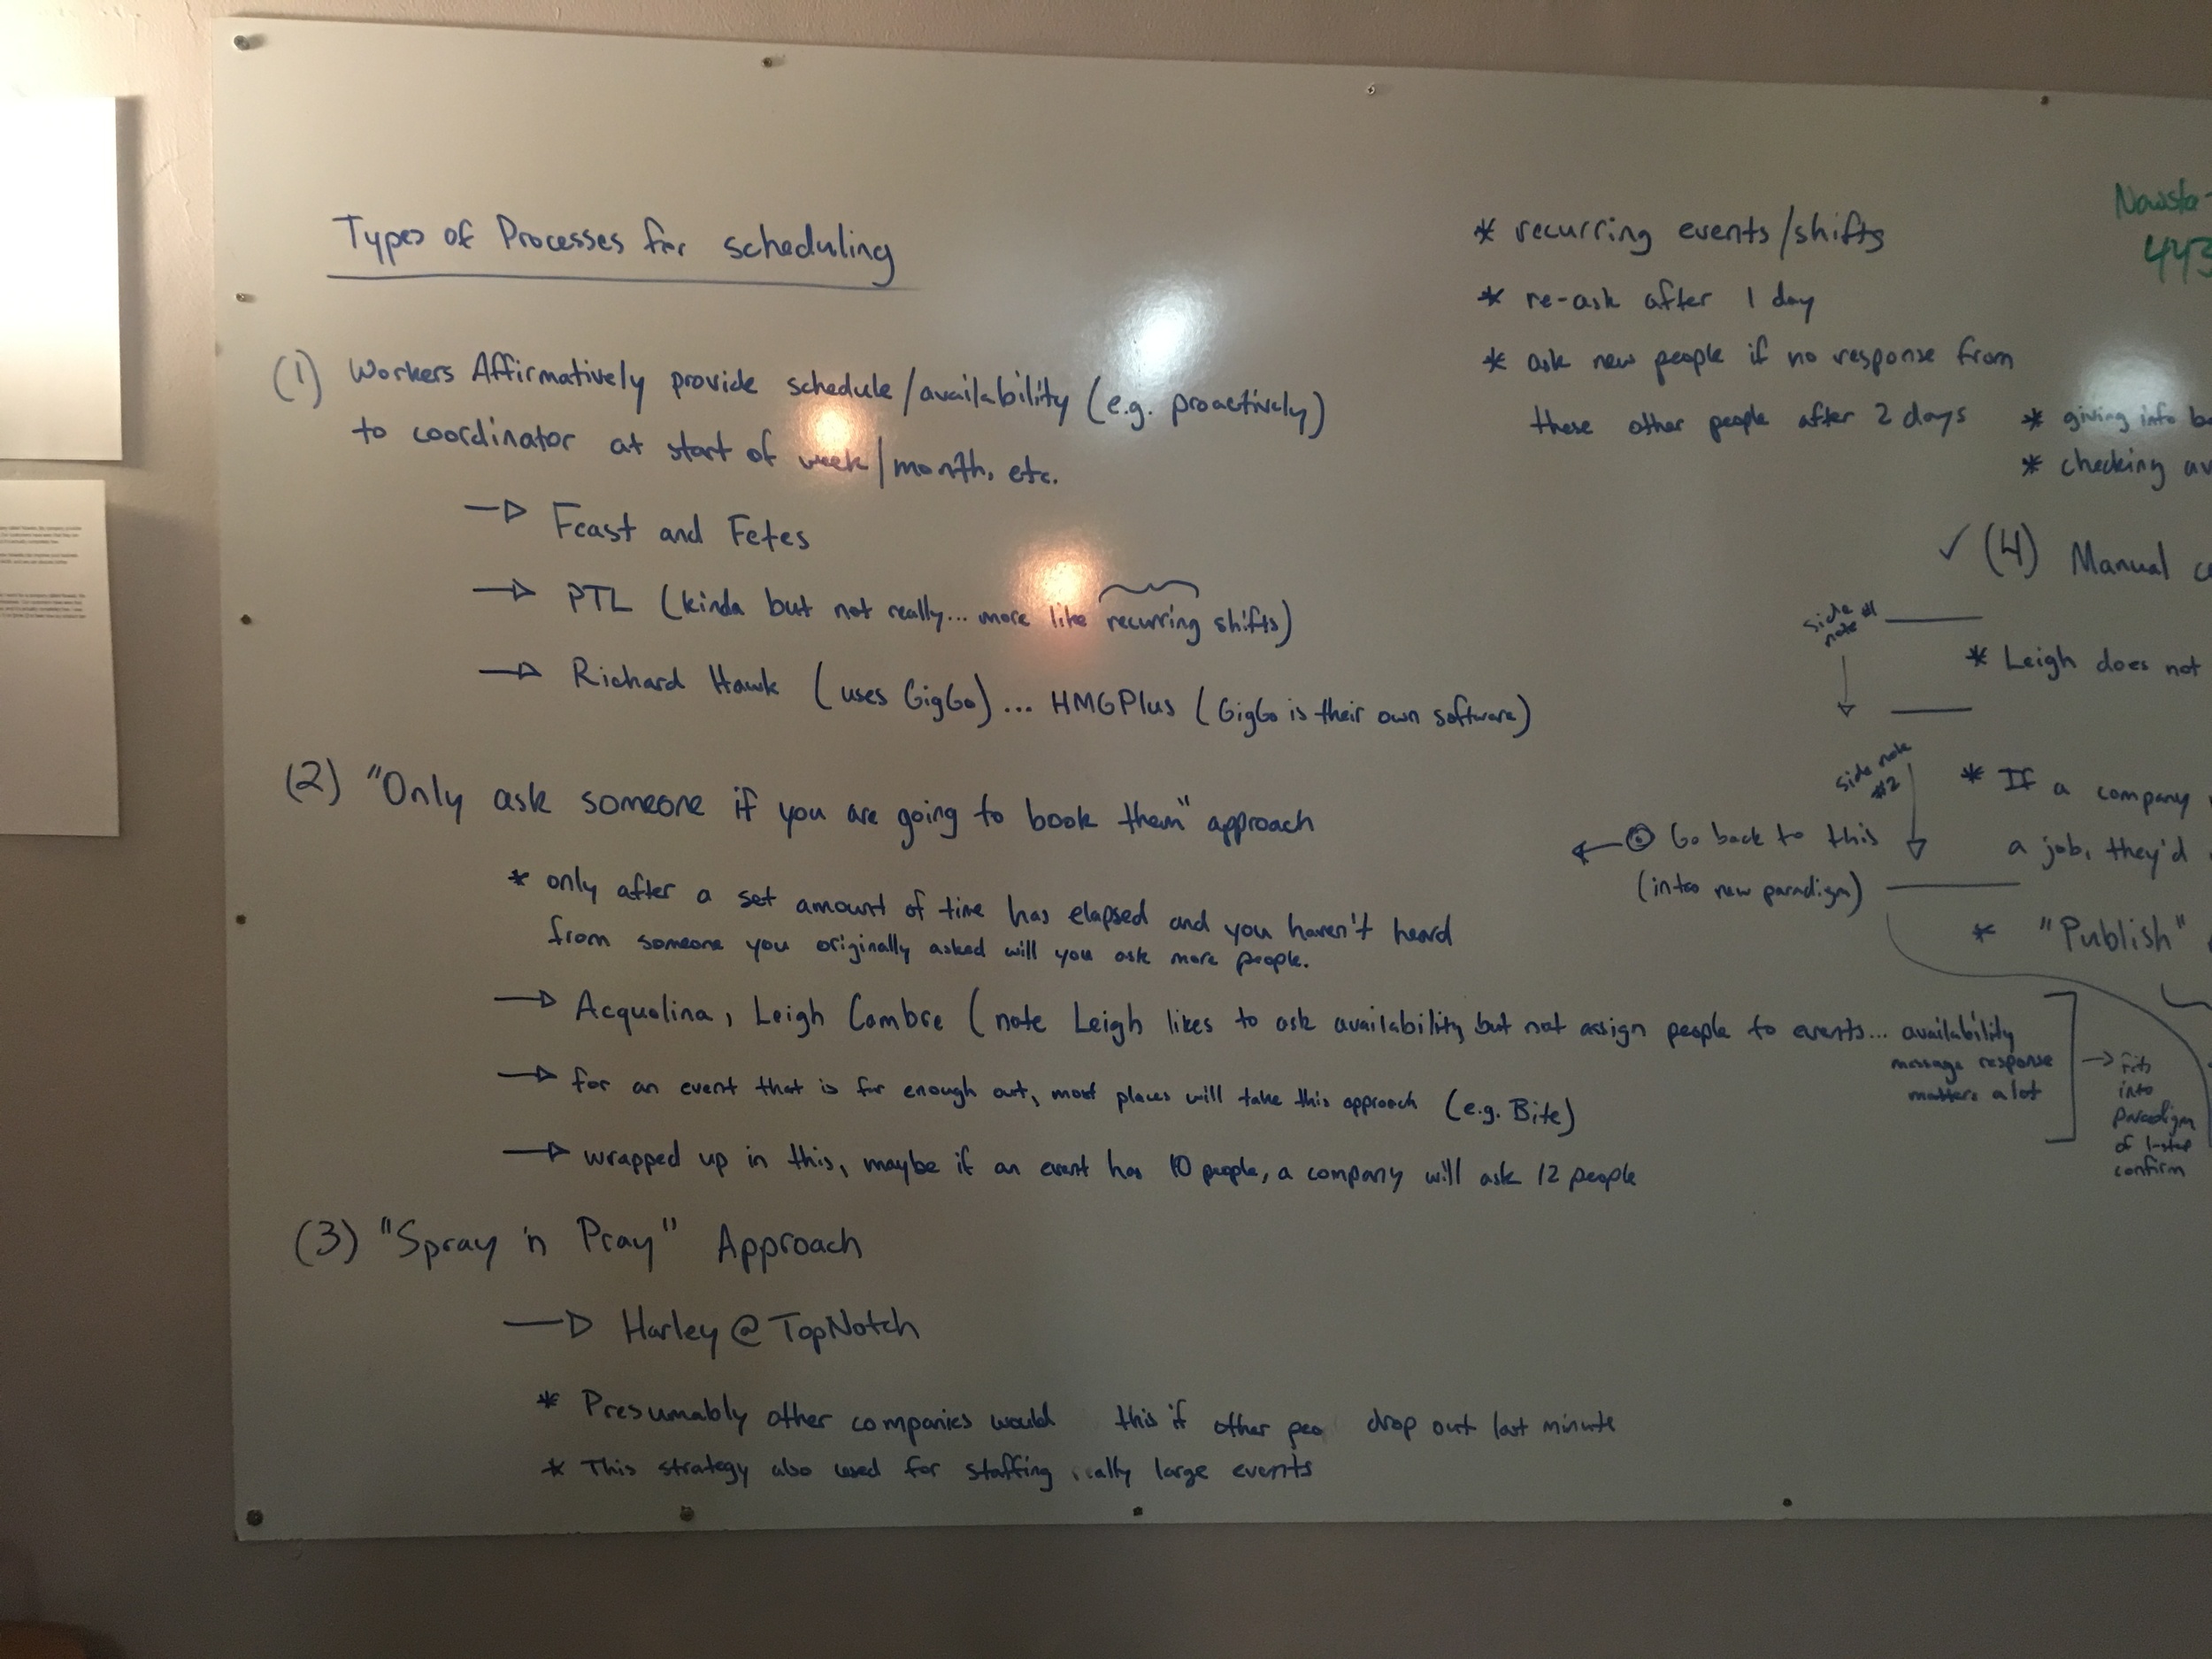 Types of Processes for scheduling
(1) Workers Affirmatively provide schedule/availability (e.g. proactively)
to coordinator at start of week/month, etc.
→ Feast and Fetes
→ PTL (kinda but not really... more like recurring shifts)
→ Richard Hawk (uses GigGo)... HMGPlus (GigGo is their own software)
(2) "Only ask someone if you are going to book them" approach
* only after a set amount of time has elapsed and you haven't heard
from someone you originally asked will you ask more people.
→ Acquolina, Leigh Combre (note Leigh likes to ask availability, but not assign people to events... availability
message response
matters a lot
→ Fits
into
paradigm
of 1-step
confirm
→ for an event that is far enough out, most places will take this approach (e.g. Bite)
→ wrapped up in this, maybe if an event has 10 people, a company will ask 12 people
(3) "Spray 'n Pray" Approach
→ Harley @ TopNotch
* Presumably other companies would this if other peo drop out last minute
* This strategy also used for staffing really large events
* recurring events/shifts
* re-ask after 1 day
* ask new people if no response from
these other people after 2 days
Nowsta
443
* giving info
* checking
✓ (4) Manual
side note #1
* Leigh does not
side note #2
* If a company
a job, they'd
← Go back to this
(intro new paradigm)
* "Publish"